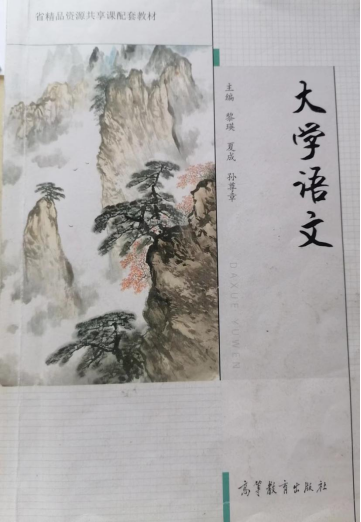 省精品资源共享课配套教材
大学语文
主编 黎瑛 夏成 孙尊章
DAXUE YUWEN
高等教育出版社